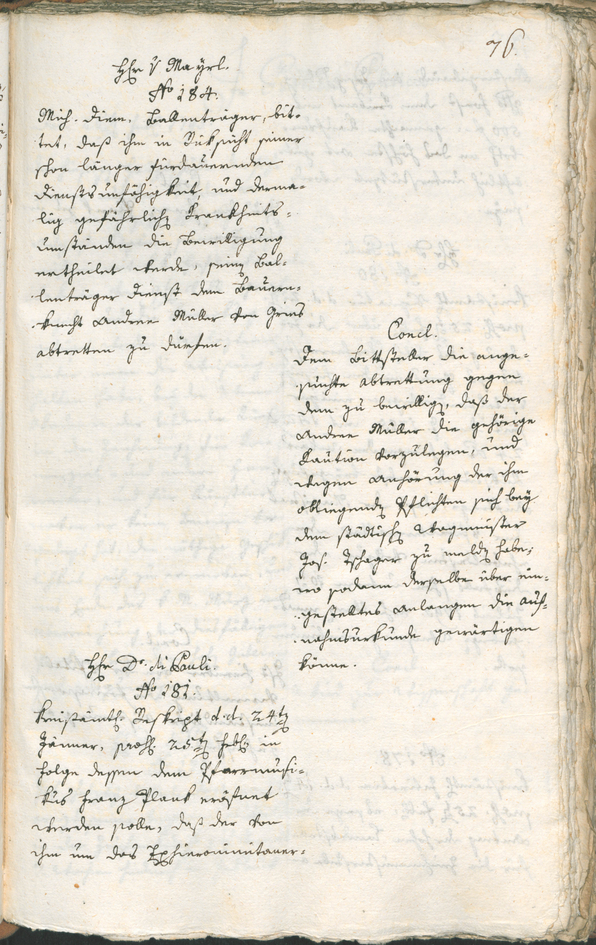 76.
Hr. v. Mayrl.
No 184.
Mich. Diem, Ballenträger, bit-
tet, daß ihm in Rüksicht seiner
schon länger fürdauernden
Dienstsunfähigkeit, und derma-
lig gefährlichen Krankheits-
umständen die Bewilligung
ertheilet werde, seinen Bal-
lenträger Dienst dem Bauern-
knecht Andree Müller von Gries
abtretten zu dürfen.
Concl.
Dem Bittsteller die ange-
suchte Abtrettung gegen
dem zu bewilligen, daß der
Andree Müller die gehörige
Kaution vorzulegen, und
wegen Anhörung der ihm
obliegenden Pflichten sich bey
dem städtischen Wagmeister
Jos. Tschager zu melden habe;
wo sodann derselbe über ein-
gestelltes Anlangen die Auf-
nahmsurkunde gewärtigen
könne.
Hr. Dr. di Pauli.
No 181.
Kreisämtl. Reskript d. d. 24ten
Jänner, prohs. 25ten Febr. in
Folge dessen dem Pfarrmusi-
kus Franz Plank eröffnet
werden solle, daß der von
ihm um das Exhieronimitaner-